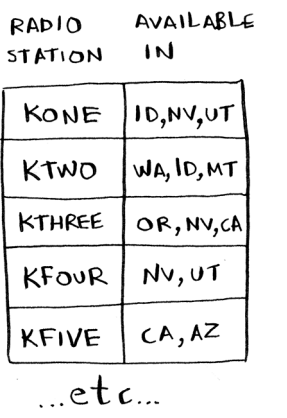 RADIO STATION AVAILABLE IN
KONE ID,NV,UT
KTWO WA, ID,MT
KTHREE OR, NV,CA
KFOUR NV, UT
KFIVE CA, AZ
...etc...